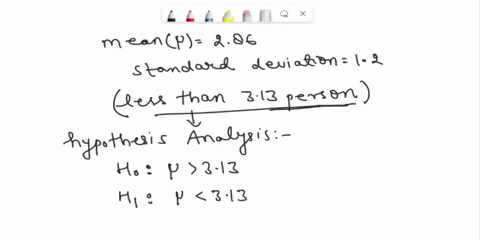 mean(μ) = 2.86
standard deviation = 1.2
(less than 3.13 person)
hypothesis Analysis:-
H₀: μ > 3.13
H₁: μ < 3.13